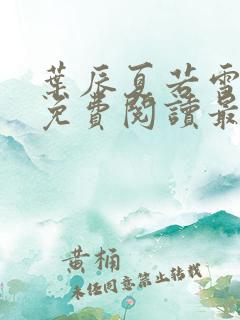 葉辰夏若雪
免費閱讀最
黃桶
未经同意禁止转载